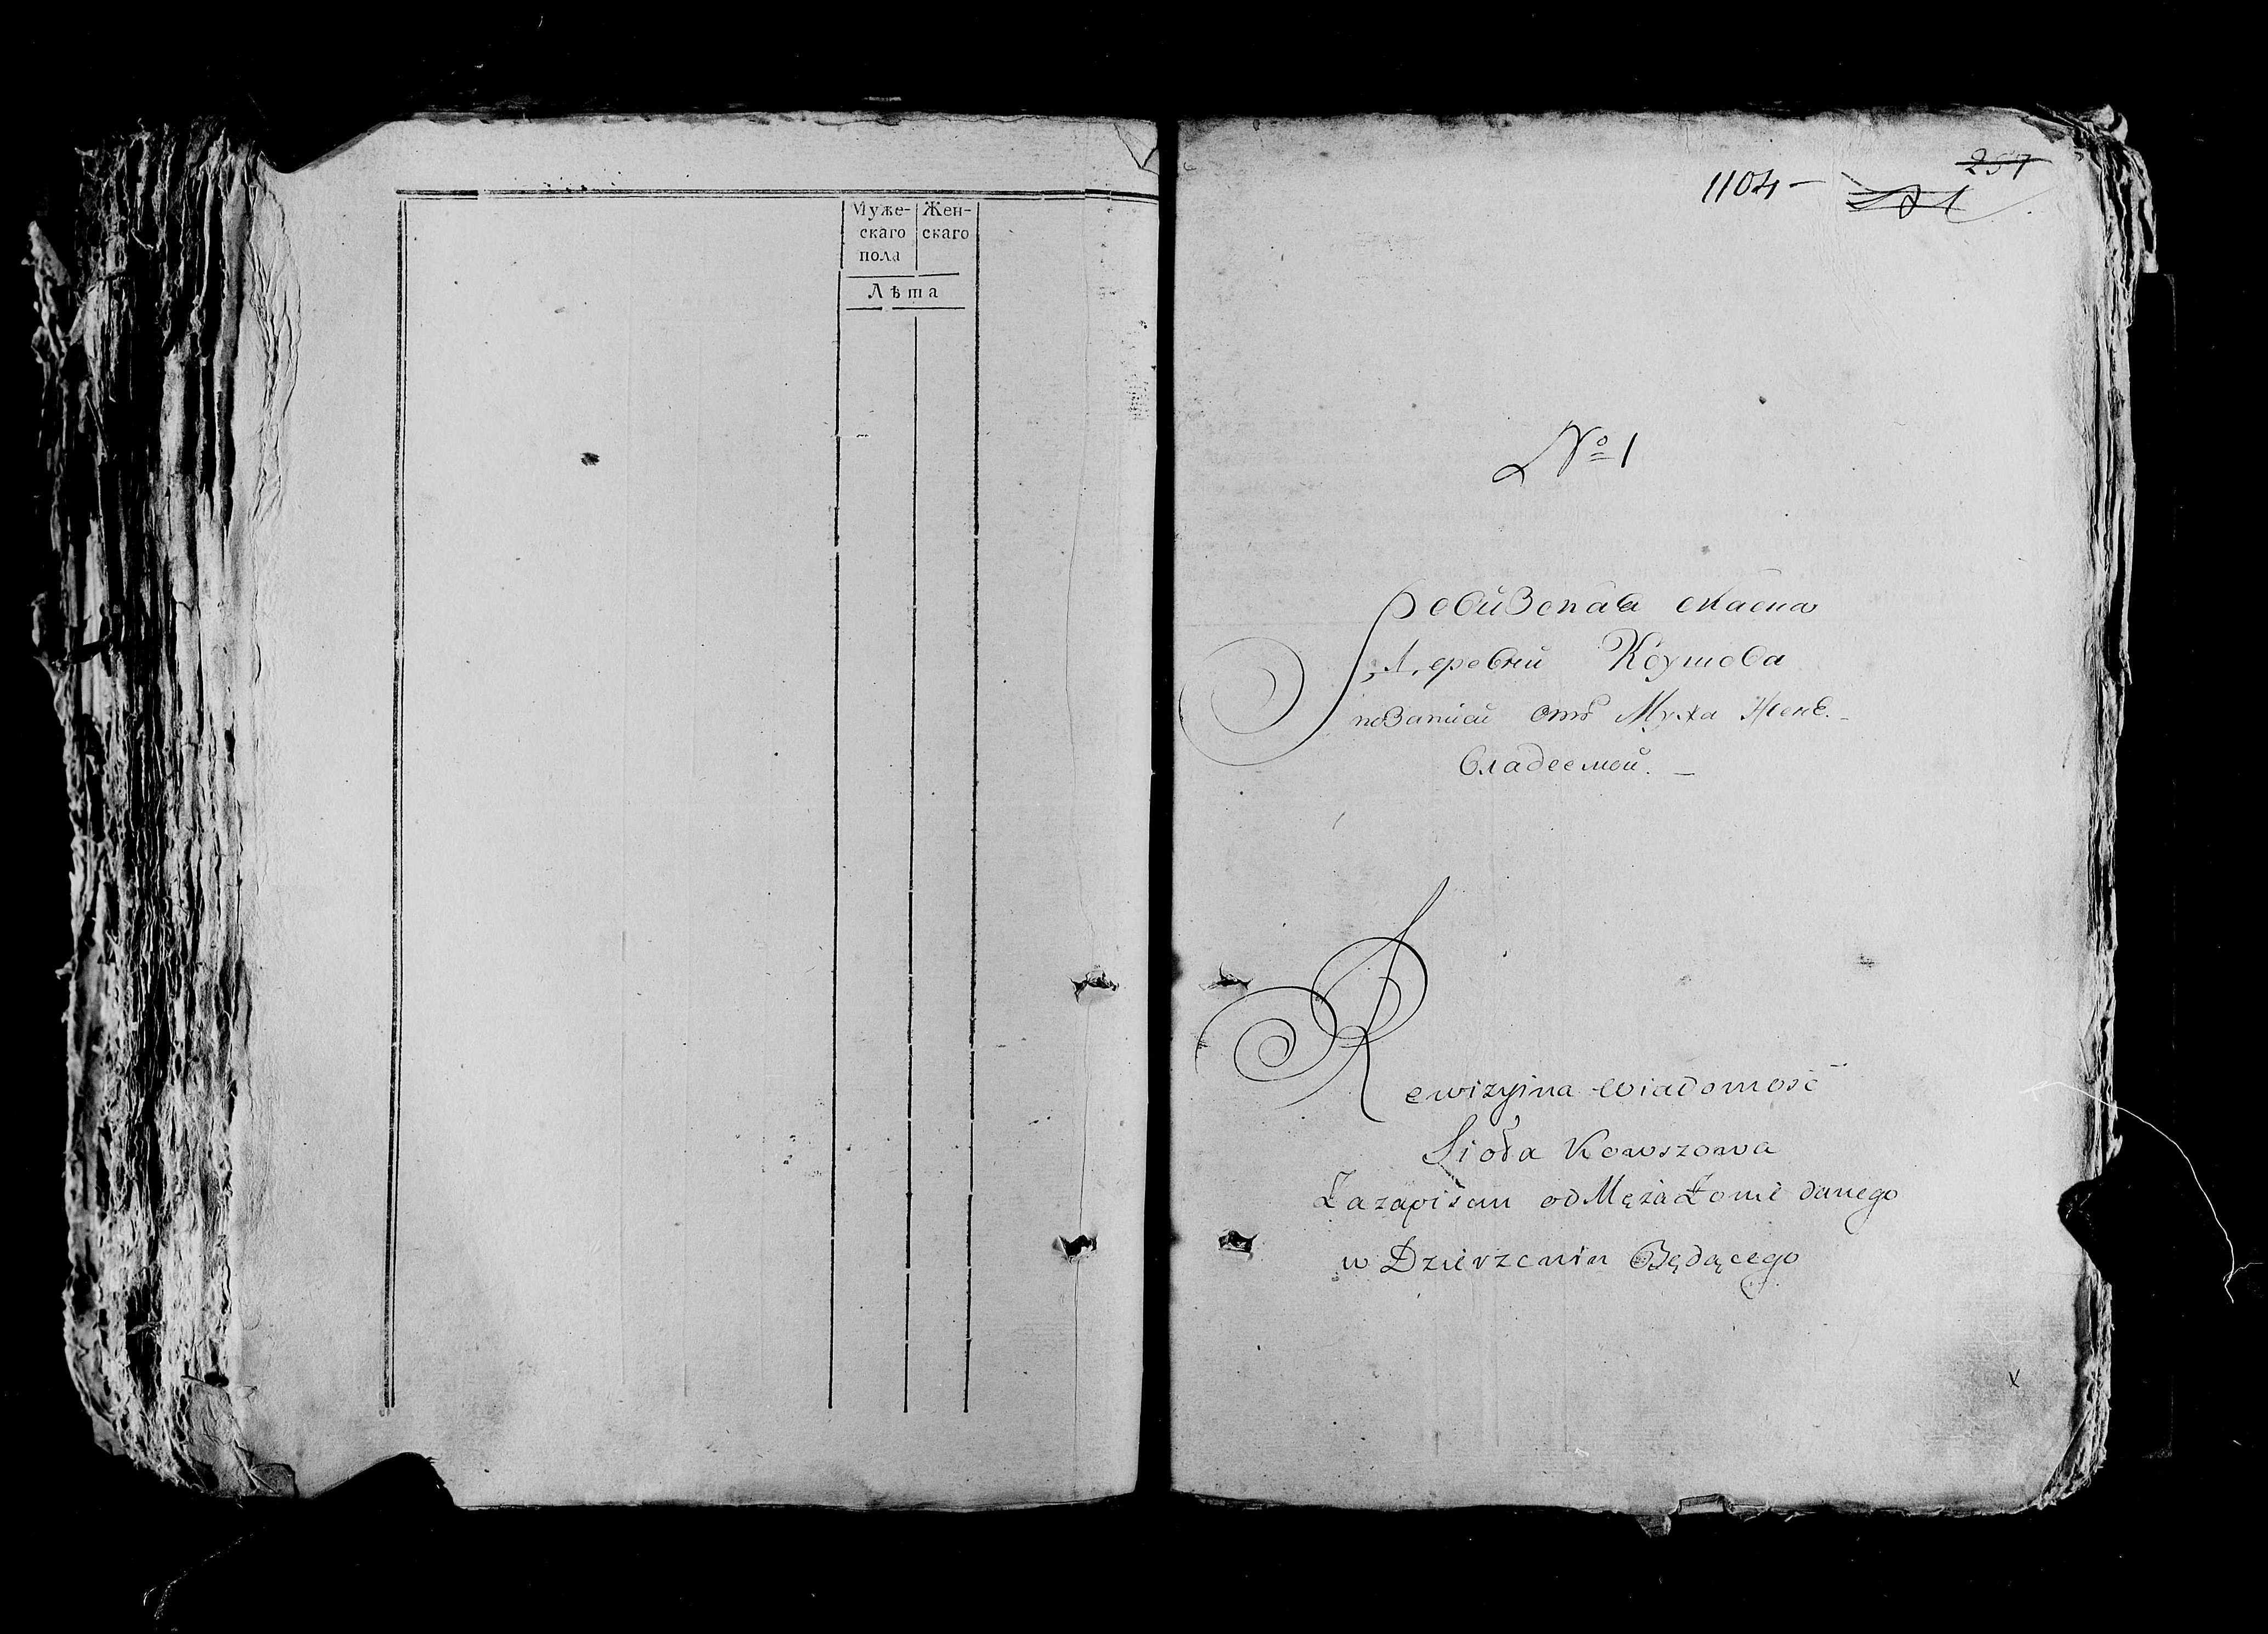 Муже-
скаго
пола
Жен-
скаго
Лѣта
1104 –
257
№ 1
Ревизская скаска
Деревни Коушова
отъ Мужа Жене
владеемой. –
Rewizyina Wiadomość
Sioła Kowszowa
Za zapisem od Męża Żonie danego
w Dzierzeniu Będącego
x